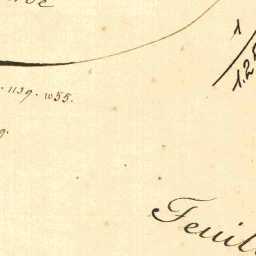 1
1.25
1139. w55.
9.
Feuil